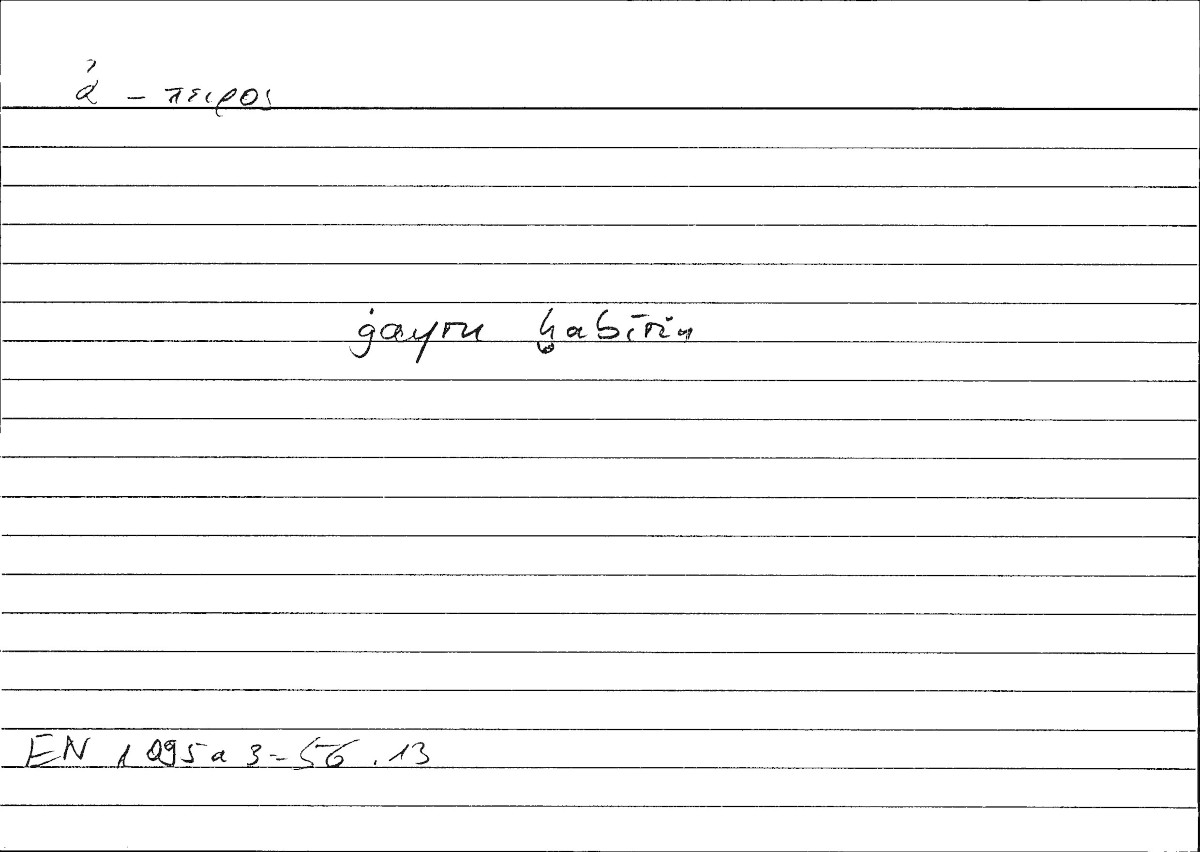 ἀ – πειρος
ġayru ḫabīrin
EN 1 095 a 3 = 56 . 13